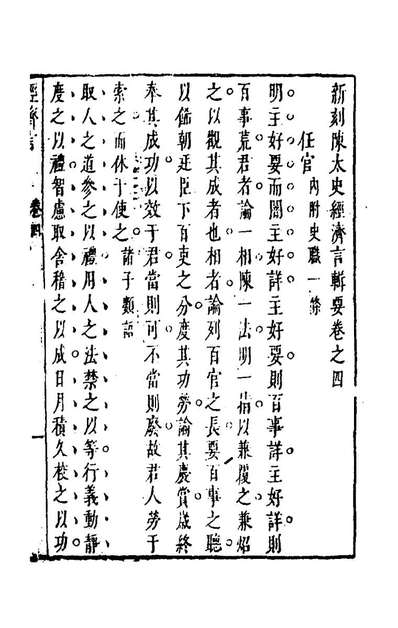 新刻陳太史經濟言輯要卷之四
任官 內附史職一條
明主好要而闇主好詳主好要則百事詳主好詳則
百事荒君者論一相陳一法明一指以兼覆之兼炤
之以觀其成者也相者論列百官之長要百事之聽
以飾朝廷臣下百吏之分度其功勞論其慶賞歲終
奉其成功以效于君當則可不當則廢故君人勞于
索之而休于使之 諸子類語
取人之道參之以禮用人之法禁之以等行義動靜
度之以禮智慮取舍稽之以成日月積久校之以功
經濟言
卷四
一